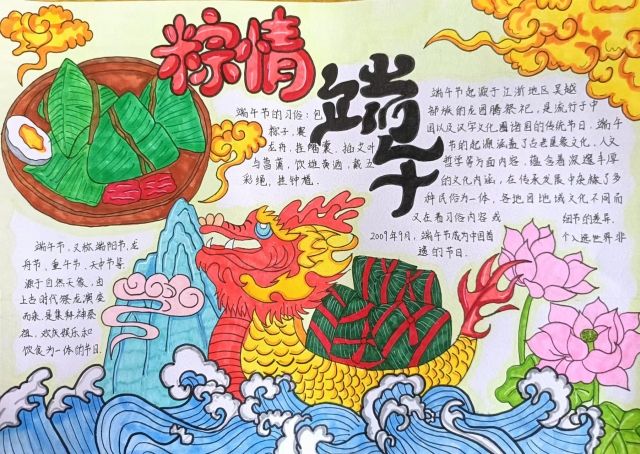 粽情
端午
端午节的习俗:包
粽子,赛
龙舟,挂香囊,插艾叶
与菖蒲,饮雄黄酒,戴五
彩绳,挂钟馗.
端午节起源于江浙地区吴越
部族的龙图腾祭祀,是流行于中
国以及汉字文化圈诸国的传统节日.端午
节的起源涵盖了古老星象文化,人文
哲学等方面内容.蕴含着深邃丰厚
的文化内涵,在传承发展中杂糅了多
种民俗为一体,各地因地域文化不同而
又在着习俗内容或
细节的差异.
2009年9月,端午节成为中国首
个入选世界非
遗的节日.
端午节,又称端阳节,龙
舟节,重午节,天中节等
源于自然天象,由
上古时代祭龙演变
而来,是集拜神祭
祖,欢庆娱乐和
饮食为一体的节日.